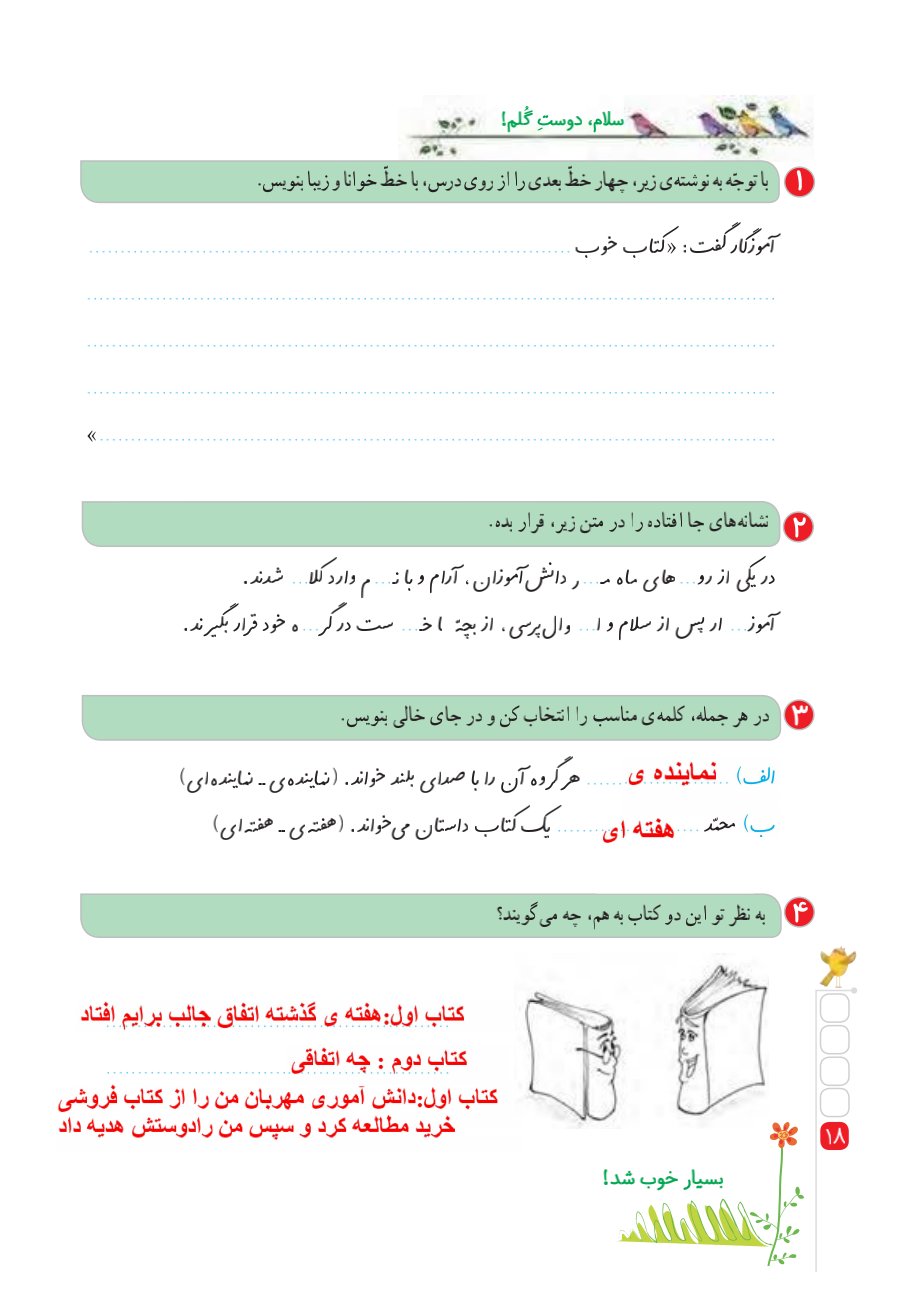 سلام، دوستِ گُلم!
۱ با توجّه به نوشته‌ی زیر، چهار خطّ بعدی را از روی درس، با خطّ خوانا و زیبا بنویس.
آموزگار گفت: «کتاب خوب ........................
........................
........................
........................
........................»
۲ نشانه‌های جا افتاده را در متن زیر، قرار بده.
در یکی از رو... های ماه مـ... ر دانش‌آموزان، آرام و با نـ... م وارد کلا... شدند.
آموز... ار پس از سلام و ا... وال‌پرسی، از بچّه ا خـ... ست در گر... ه خود قرار بگیرند.
۳ در هر جمله، کلمه‌ی مناسب را انتخاب کن و در جای خالی بنویس.
الف) نماینده ی هر گروه آن را با صدای بلند خواند. (نماینده‌ی ـ نماینده‌ای)
ب) محمّد هفته ای یک کتاب داستان می‌خواند. (هفته‌ی ـ هفته‌ای)
۴ به نظر تو این دو کتاب به هم، چه می‌گویند؟
کتاب اول:هفته ی گذشته اتفاق جالب برایم افتاد
کتاب دوم : چه اتفاقی
کتاب اول:دانش آموری مهربان من را از کتاب فروشی
خرید مطالعه کرد و سپس من رادوستش هدیه داد
۱۸
بسیار خوب شد!